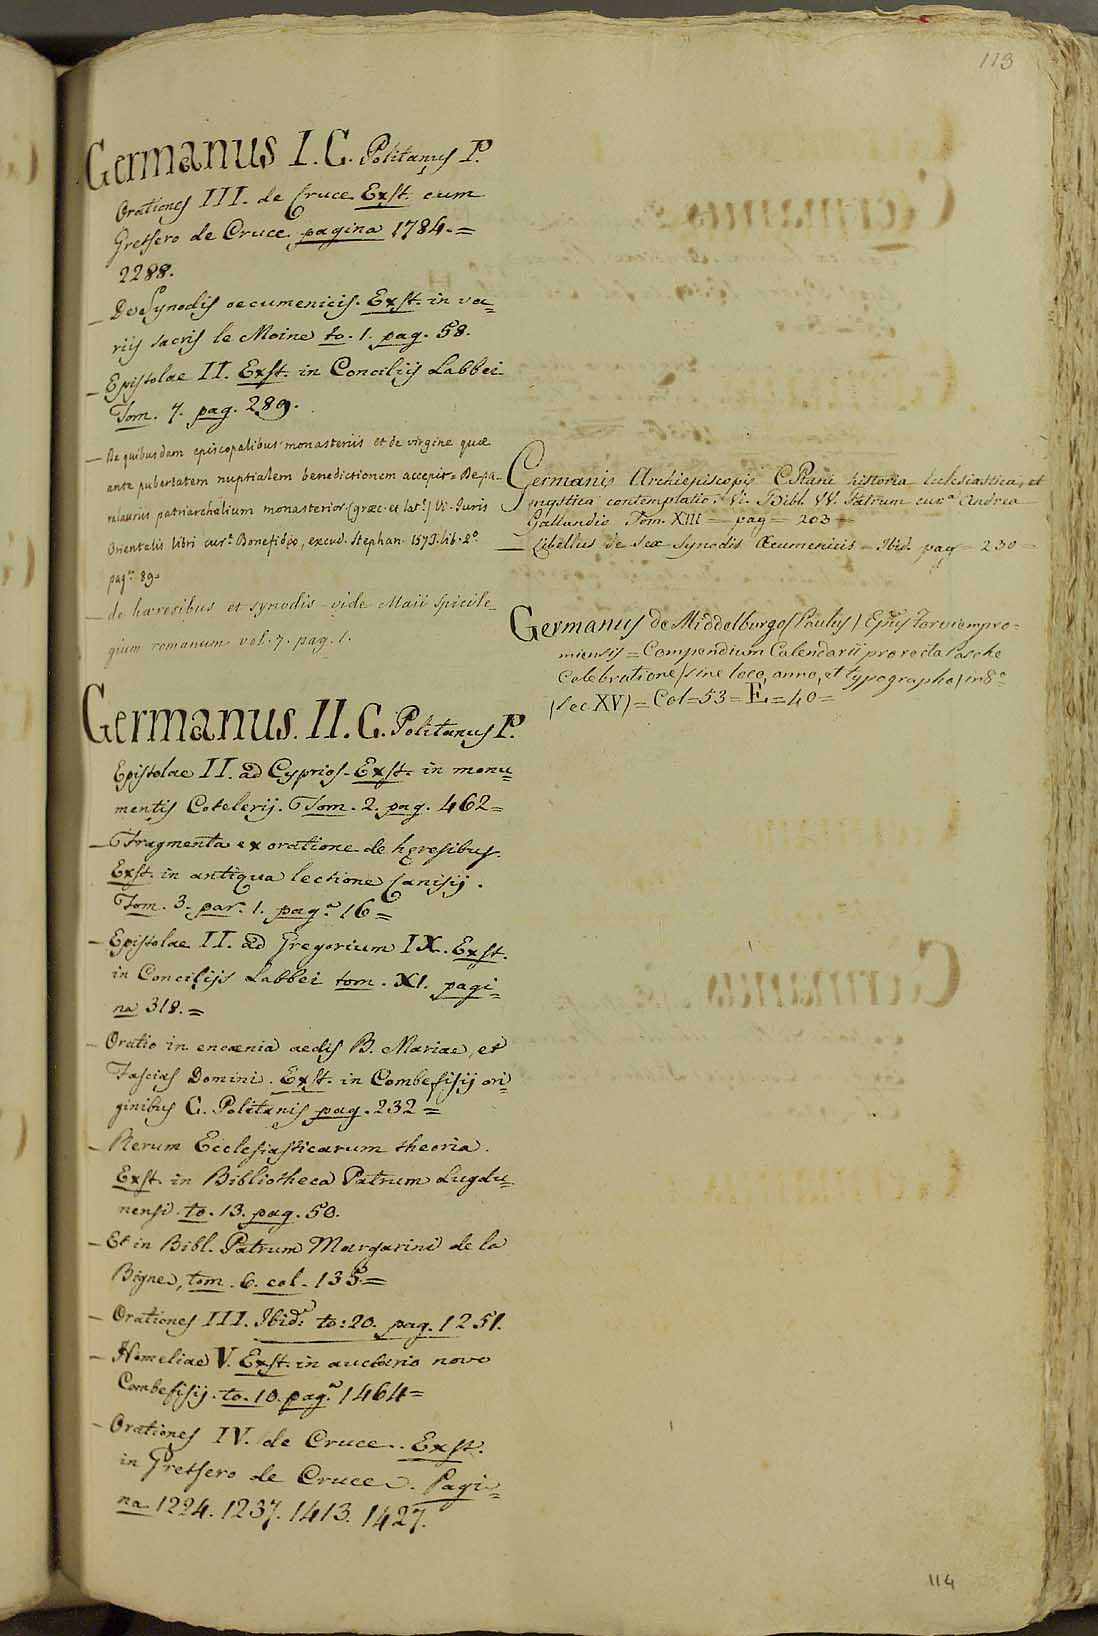 113
Germanus I. C. Politanus P.
Orationes III. de Cruce. Exst. cum
Gretsero de Cruce. pagina 1784.=
2288.
_ De Synodis oecumenicis. Exst. in va=
riis sacris le Moine to. 1. pag. 58.
_ Epistolae II. Exst. in Conciliis Labbei
Tom. 7. pag. 289.
_ De quibusdam episcopalibus monasteriis et de virgine quae
ante pubertatem nuptialem benedictionem accepit = De pa-
triarchalium monasterior. (graec. et lat.) Vi. Juris
Orientalis libri cur.e Bonefidio, excud. Stephan. 1573. lib. 2.o
pag.a 89.
_ de haeresibus et synodis vide Maii Spicile_
gium romanum vol. 7. pag. 1.
Germanus. II. C. Politanus P.
Epistolae II. ad Cyprios. Exst. in monu=
mentis Cotelerij. Tom. 2. pag. 462=
_ Fragmenta ex oratione de hęresibus.
Exst. in antiqua lectione Canisij.
Tom. 3. par. 1. pag.a 16=
_ Epistolae II. ad Gregorium IX. Exst.
in Concilijs Labbei tom. XI. pagi=
na 318.=
_ Oratio in encaenia aedis B. Mariae, et
Fascias Domini. Exst. in Combefisij ori=
ginibus C. Politanis pag. 232=
_ Rerum Ecclesiasticarum theoria.
Exst. in Bibliotheca Patrum Lugdu=
nensi. to. 13. pag. 50.
_ Et in Bibl. Patrum Margarini de la
Bigne, tom. 6. col. 135=
_ Orationes III. Ibid: to: 20. pag. 1251.
_ Homeliae V. Exst. in auctario novo
Combefisij. to. 10. pag.a 1464=
_ Orationes IV. de Cruce.. Exst.
in Gretsero de Cruce. Pagi=
na 1224. 1237. 1413. 1427.
Germanis Archiepiscopi CPtani historia Eclesiastica, et
mysttica contemplatio. Vi. Bibl. VV. Patrum cur.a Andrea
Gallandio Tom. XIII = pag = 203 =
_ Libellus de sex Synodis Œcumenicis = Ibid. pag = 230 =
Germanus de Middelburgo (Paulus) Epus Forosempro=
niensis = Compendium Calendarii pro recta Pasche
Celebratione (sine loco, anno, et typographo) in 8.o
(sec XV) = Col = 53 = E = 40 =
114